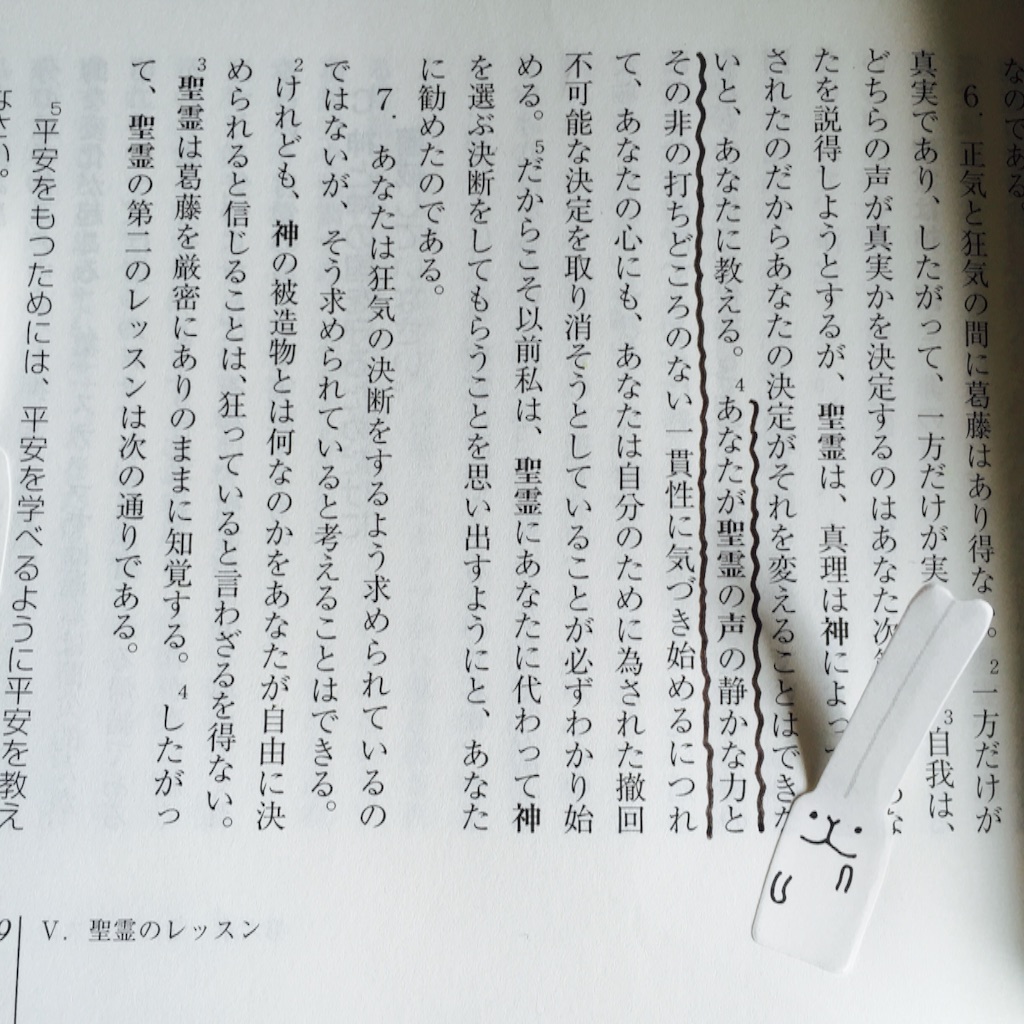 なのである。
6. 正気と狂気の間に葛藤はあり得な 。 2一方だけが
真実であり、したがって、一方だけが実 3自我は、
どちらの声が真実かを決定するのはあなた次 な
たを説得しようとするが、聖霊は、真理は神によっ
されたのだからあなたの決定がそれを変えることはでき
いと、あなたに教える。4あなたが聖霊の声の静かな力と
その非の打ちどころのない一貫性に気づき始めるにつれ
て、あなたの心にも、あなたは自分のために為された撤回
不可能な決定を取り消そうとしていることが必ずわかり始
める。5だからこそ以前私は、聖霊にあなたに代わって神
を選ぶ決断をしてもらうことを思い出すようにと、あなた
に勧めたのである。
7. あなたは狂気の決断をするよう求められているの
ではないが、そう求められていると考えることはできる。
2けれども、神の被造物とは何なのかをあなたが自由に決
められると信じることは、狂っていると言わざるを得ない。
3聖霊は葛藤を厳密にありのままに知覚する。4したがっ
て、聖霊の第二のレッスンは次の通りである。
5平安をもつためには、平安を学べるように平安を教え
なさい。
9
V. 聖霊のレッスン